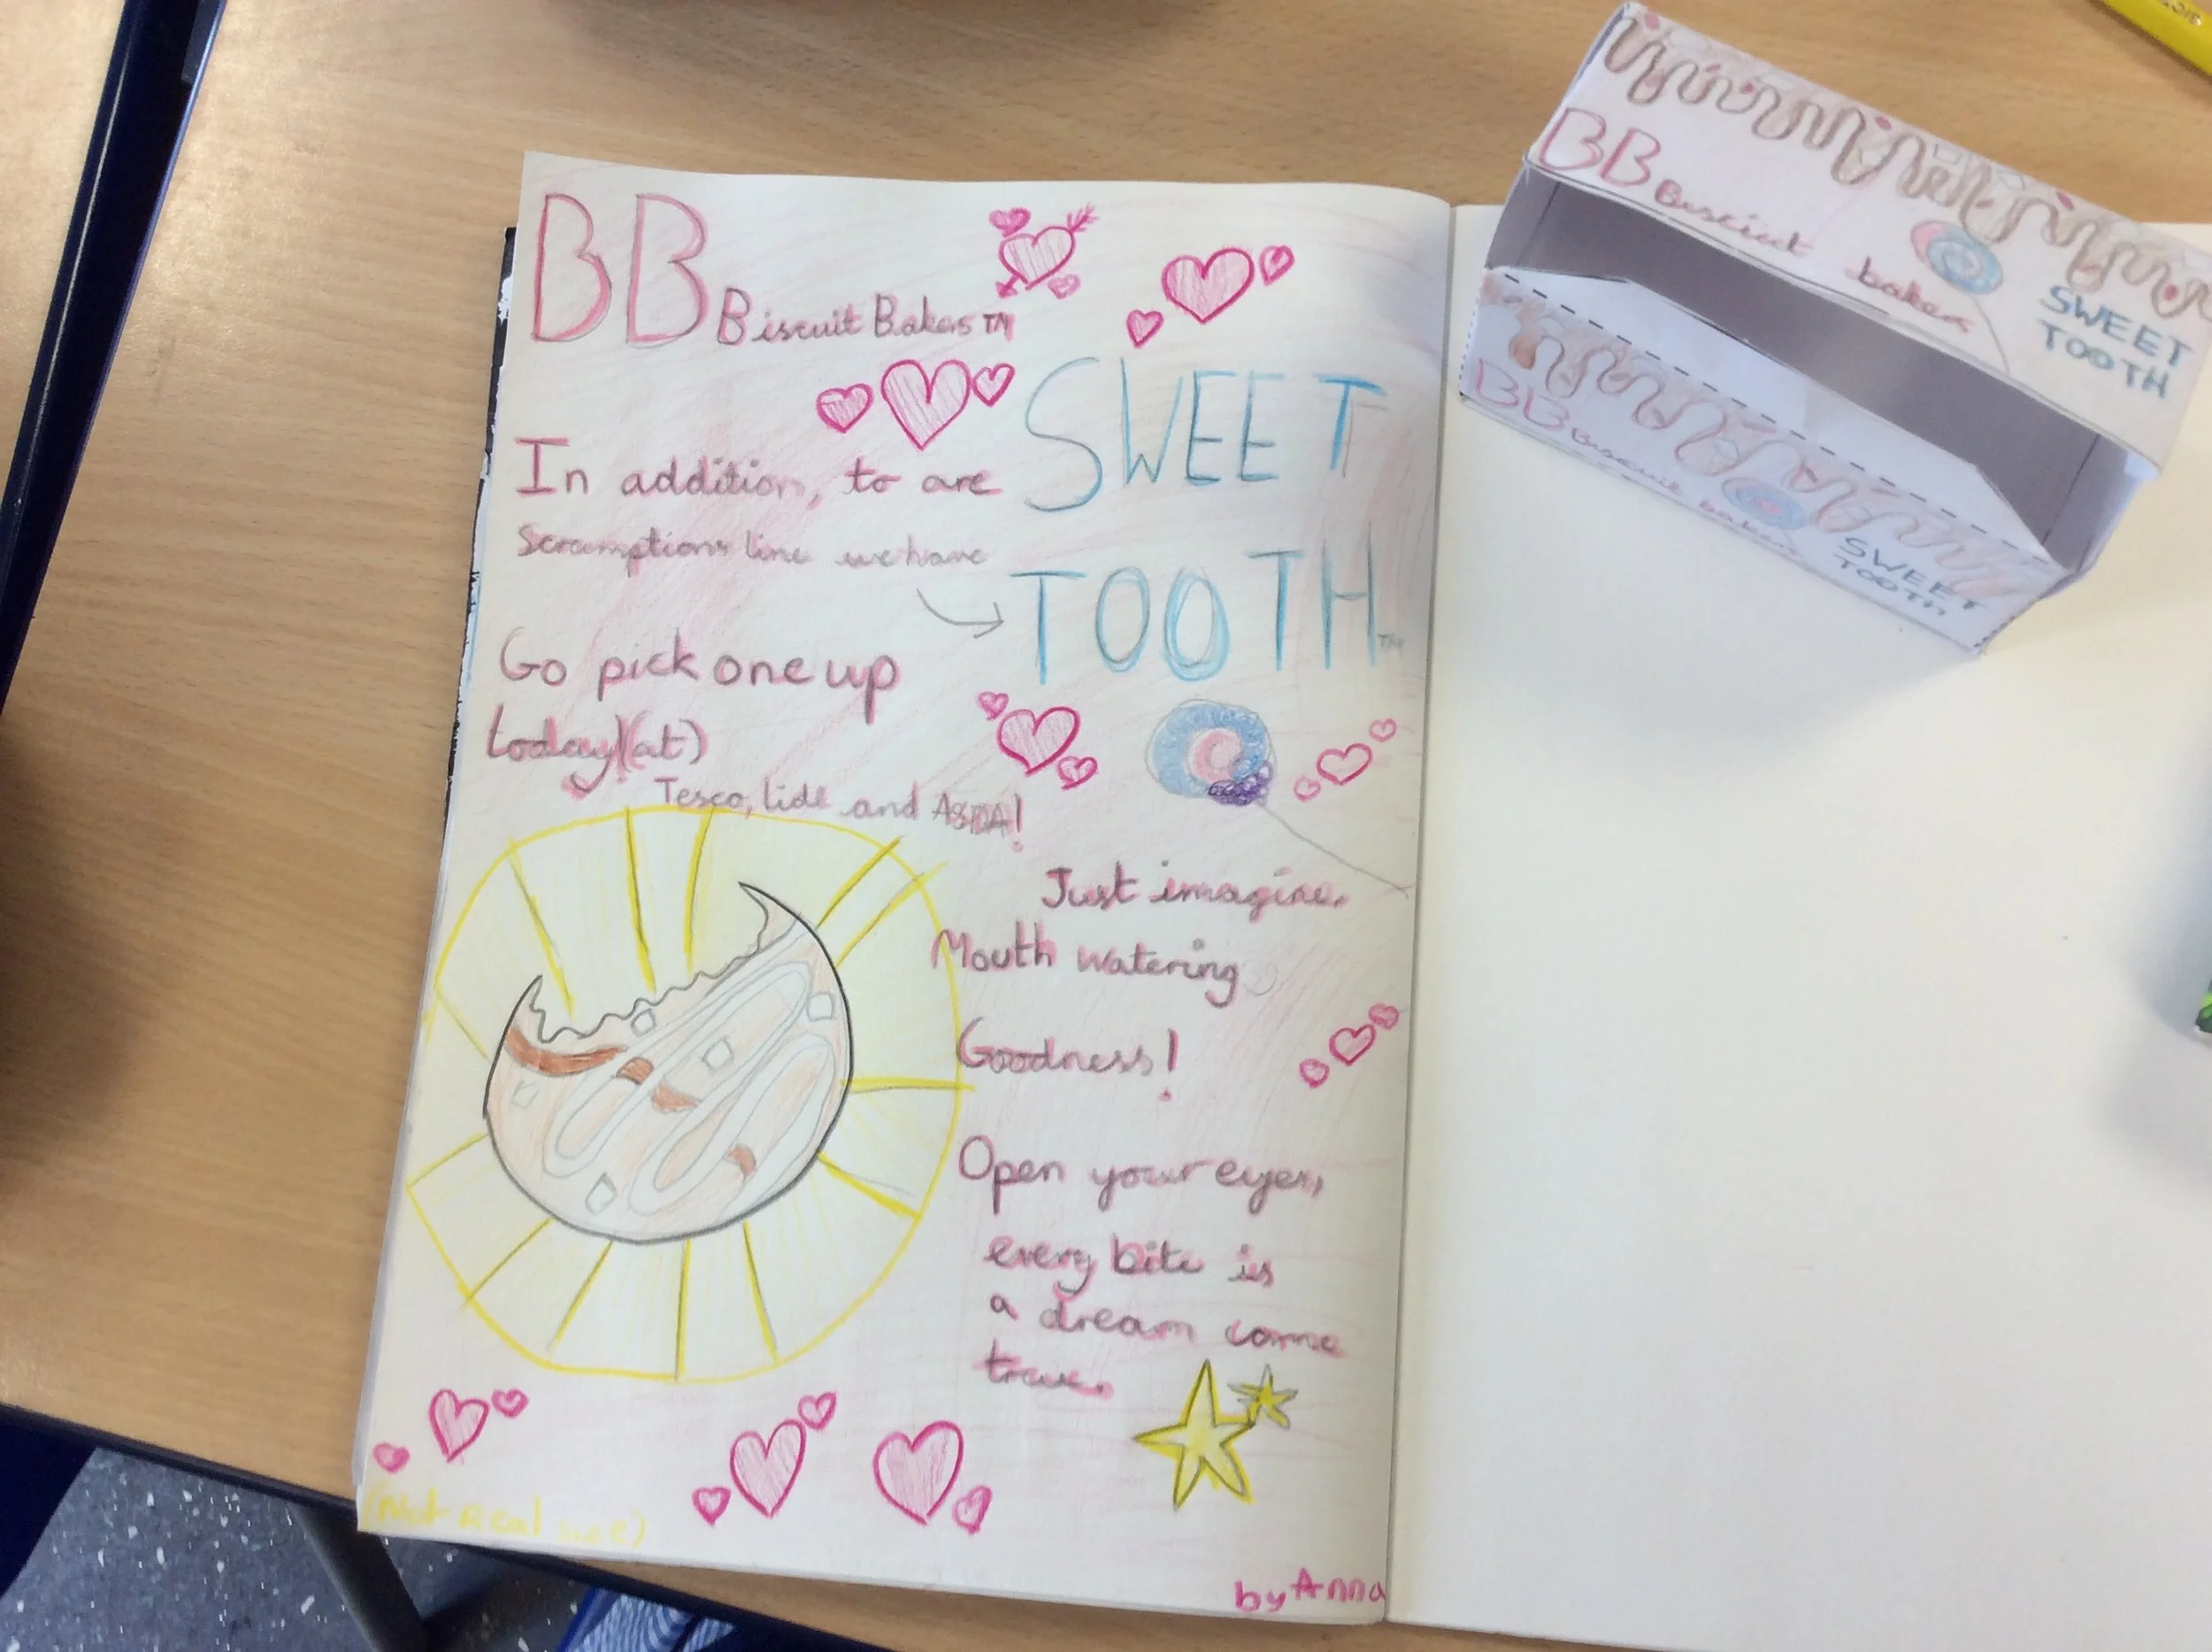 BB Biscuit Bakers TM
In addition, to are
scrumptions line we have
SWEET
TOOTH TM
Go pick one up
today! (at)
Tesco, lidl and ASDA!
Just imagine.
Mouth watering
Goodness!
Open your eyes,
every bite is
a dream come
true.
(Not Real size)
by Anna
BB Biscuit bakers
SWEET
TOOTH
BB Biscuit bakers
SWEET
TOOTH